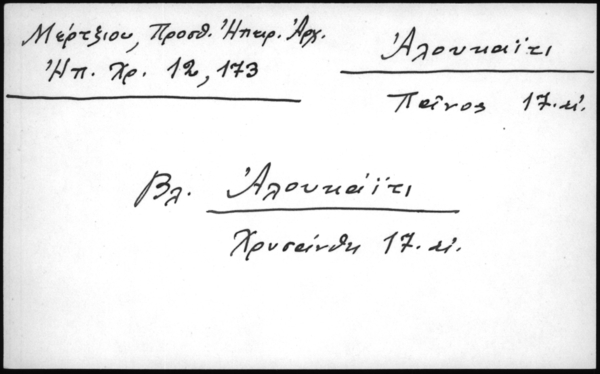 Μέρτζιου, Προσθ. Ἠπειρ. Ἀρχ.
Ἠπ. Χρ. 12, 173
Ἀλουκαΐτι
Παῖνος 17. αἰ.
Βλ. Ἀλουκάϊτι
Χρυσάνθη 17. αἰ.